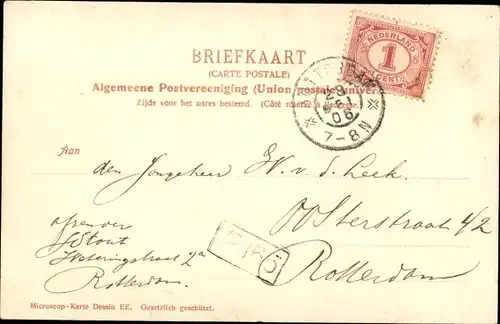 BRIEFKAART
(CARTE POSTALE)
Algemeene Postvereeniging (Union postale univers
Zijde voor het adres bestemd. (Côté réservé à l'adresse.)
NEDERLAND
1
CENT
7-8N
Aan
den Jongeheer H. v. d. Leek.
OOsterstraat 1/2
Rotterdam
afzender
Stout
Wateringstraat 2a
Rotterdam.
Microscop-Karte Dessin EE. Gesetzlich geschützt.